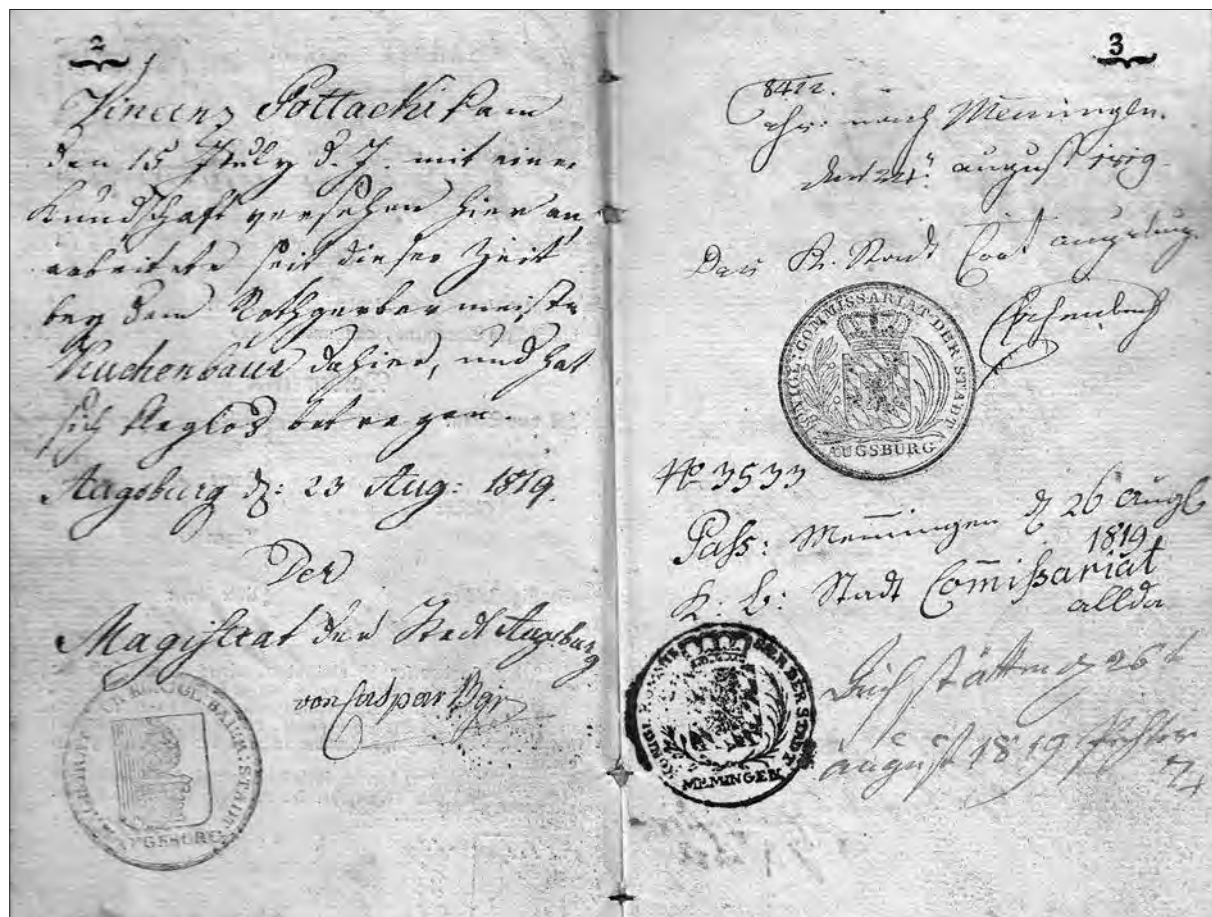 2
Vincenz Pottacki kam
den 15 July d. J. mit einer
Kundschaft versehen hier an,
arbeitete seit dieser Zeit
bey dem Rothgerbermeister
Kuchenbaur dahier, und hat
sich klaglos betragen.
Augsburg d: 23 Aug: 1819.
Der
Magistrat der Stadt Augsburg
von Caspar Bgr
KÖNIGL: BAIER: STADT
AUGSBURG
3
8422.
nach Memingen.
den 24 august 1819
Das K. Stadt Coat augsburg.
KÖNIGL: COMMISSARIAT DER STADT
AUGSBURG
No 3533
Pass: Memingen d 26 Augst
1819
K: b: Stadt Commißariat
allda
DER STADT
MEMINGEN
26
august 1819